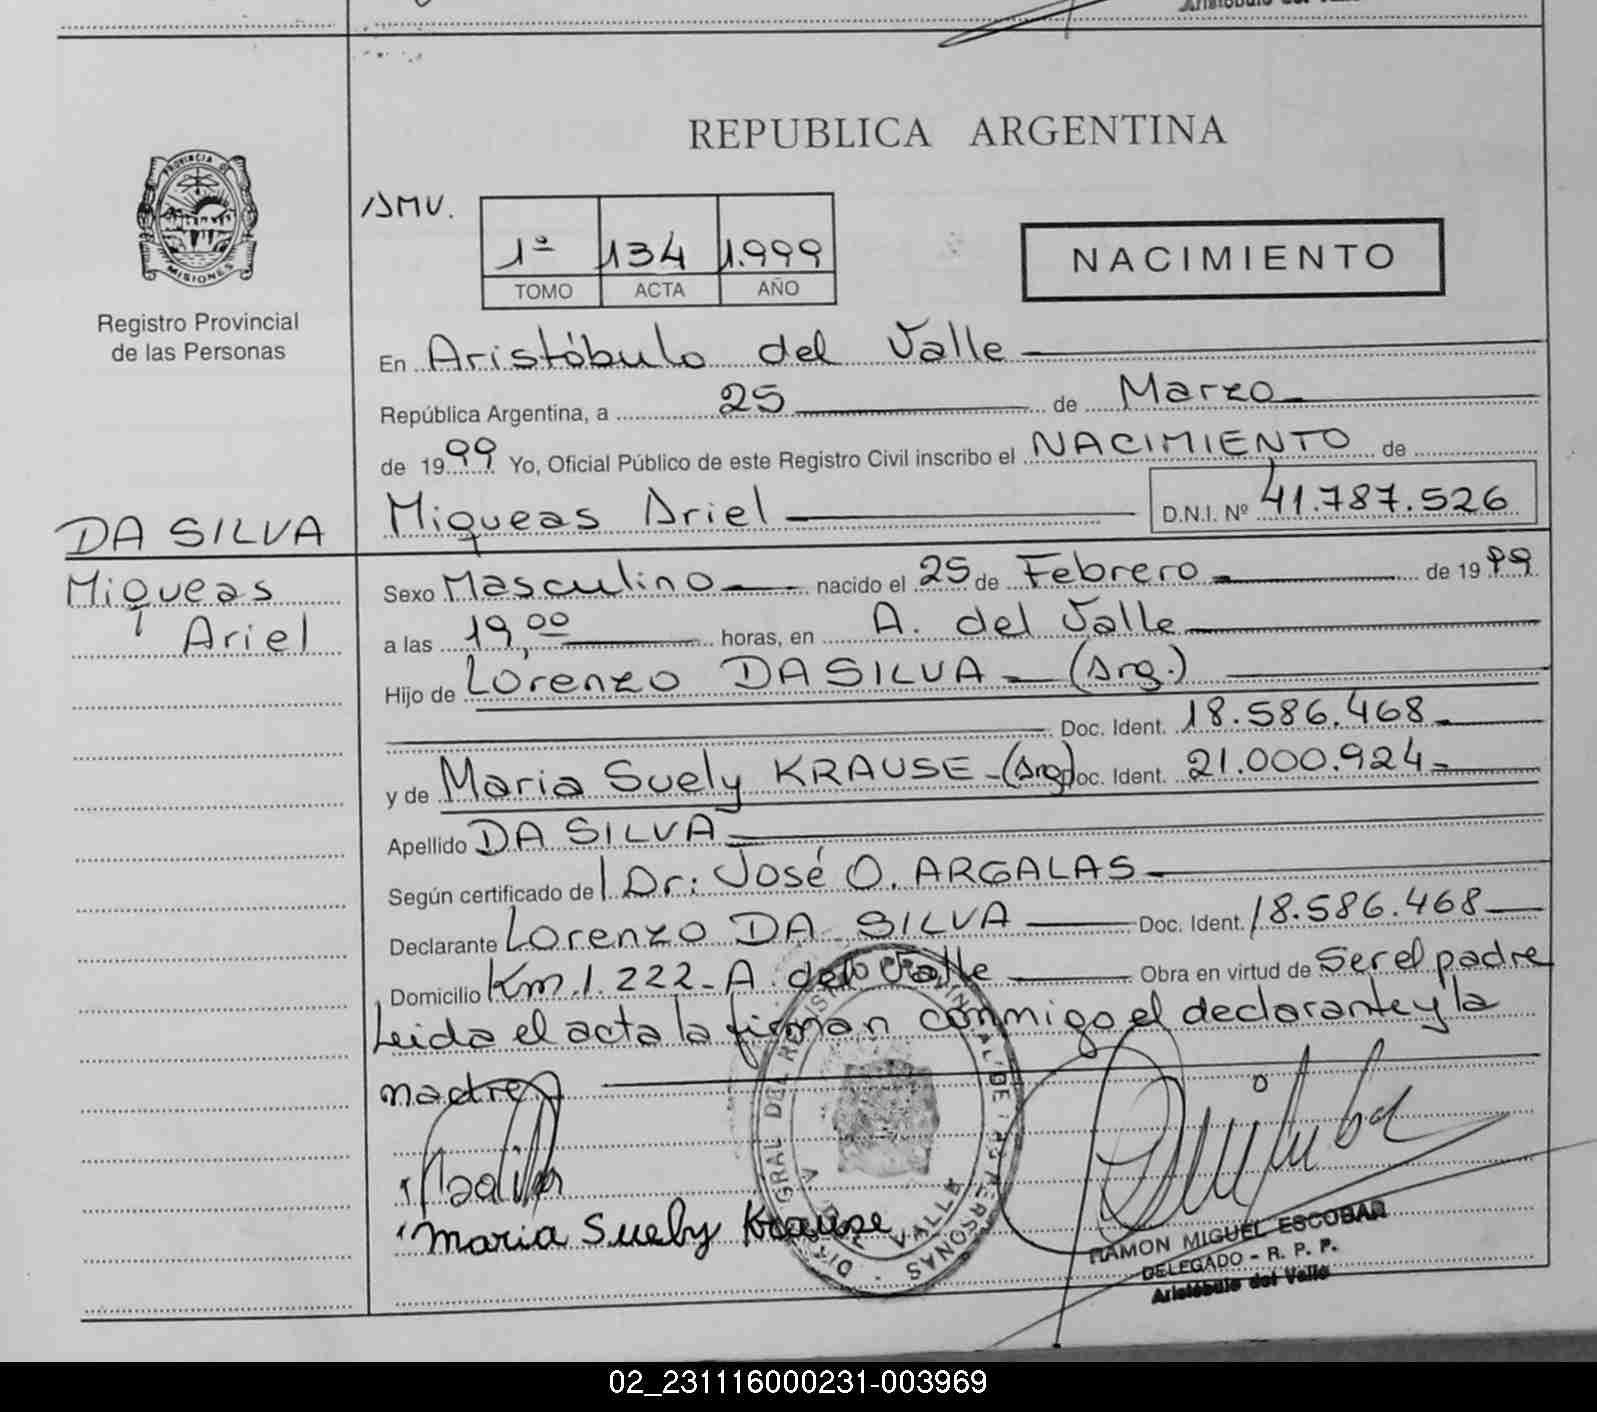 Aristóbulo del Valle
REPUBLICA ARGENTINA
PROVINCIA DE
MISIONES
Registro Provincial
de las Personas
SMV.
1º 134 1.999
TOMO ACTA AÑO
NACIMIENTO
En Aristóbulo del Valle
República Argentina, a 25 de Marzo
de 1999 Yo, Oficial Público de este Registro Civil inscribo el NACIMIENTO de
Miqueas Ariel D.N.I. Nº 41.787.526
DA SILVA
Miqueas
Ariel
Sexo Masculino nacido el 25 de Febrero de 1999
a las 19,00 horas, en A. del Valle
Hijo de Lorenzo DA SILVA - (Arg.)
Doc. Ident. 18.586.468
y de Maria Suely KRAUSE - (Arg) Doc. Ident. 21.000.924
Apellido DA SILVA
Según certificado del Dr: José O. ARGALAS
Declarante Lorenzo DA SILVA Doc. Ident. 18.586.468
Domicilio Km. 1.222 - A. del Valle Obra en virtud de ser el padre
Leida el acta la firman conmigo el declarante y la
madre
Maria Suely Krause
RAMON MIGUEL ESCOBAR
DELEGADO - R. P. P.
Aristóbulo del Valle
02_231116000231-003969